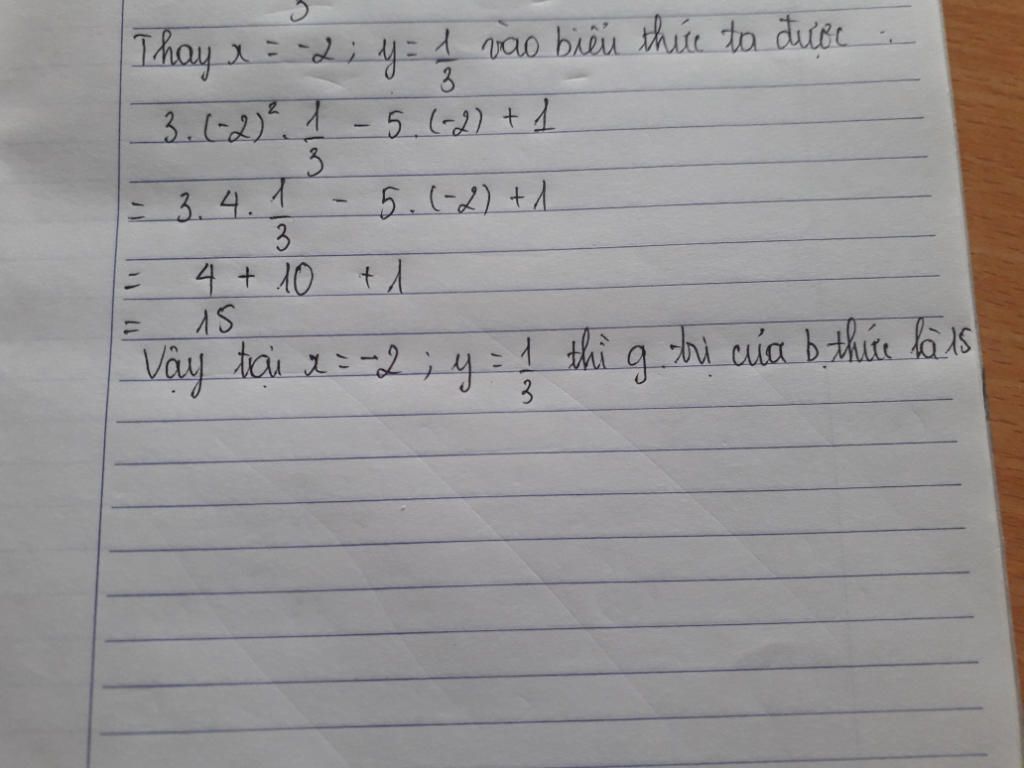 3
Thay x = -2 ; y = 1/3 vào biểu thức ta được :
3.(-2)². 1/3 - 5.(-2) + 1
= 3. 4. 1/3 - 5.(-2) + 1
= 4 + 10 + 1
= 15
Vậy tại x = -2 ; y = 1/3 thì g.trị của b.thức là 15